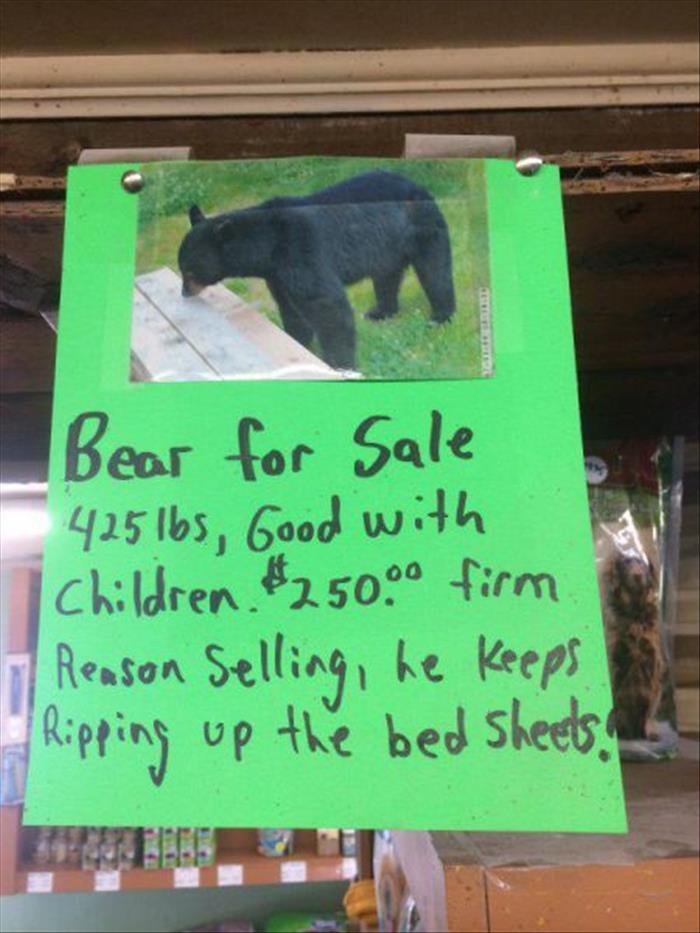 Bear for Sale
425 lbs, Good with
Children. $250.00 firm
Reason Selling, he keeps
Ripping up the bed sheets!